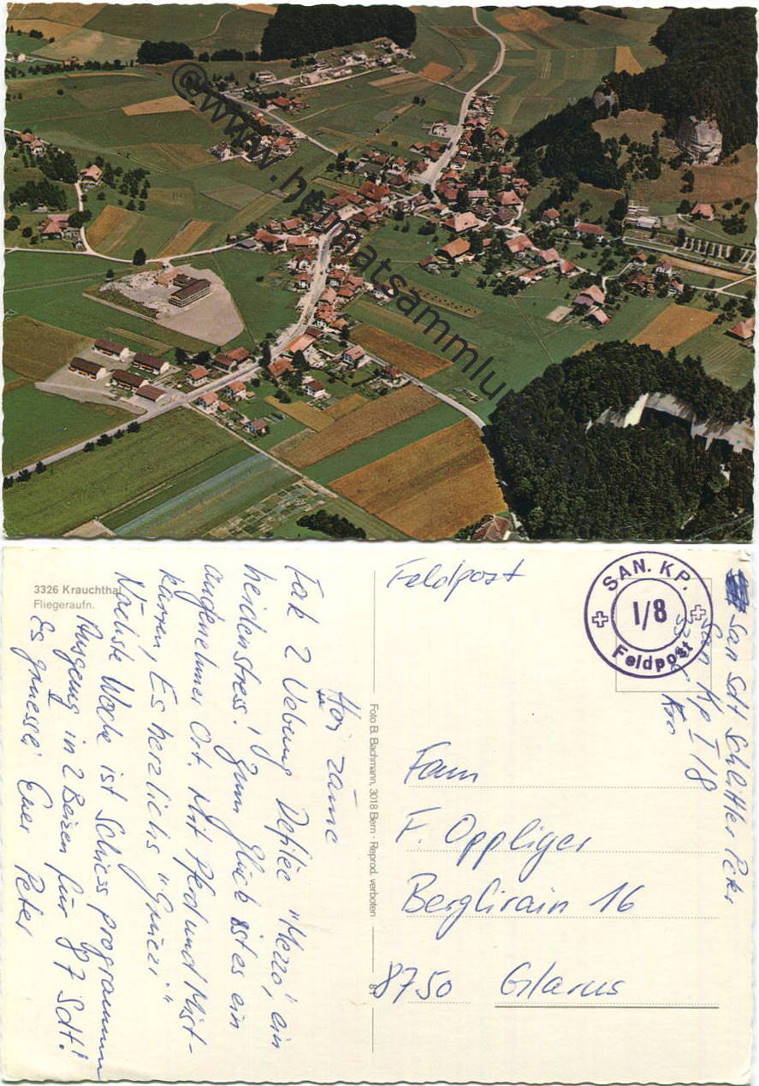 © www.heimatsammlung.de
3326 Krauchthal
Fliegeraufn.
Hoi zäme
Tak 2 Uebung Defilée "Mezzo", ein
heidenstress! Zum Glück ist es ein
angenehmer Ort. Mit Pferd und Mist-
karren, Es herzlichs "Grüezi"
Nächste Woche ist Schiessprogramm
Ausgang in 2 Beizen für 87 Sdt!
Es gruessei Euer Peter
Foto B. Bachmann, 3018 Bern · Reprod. verboten
Feldpost
SAN. KP.
I/8
Feldpost
San Sdt Schlittler Peter
San Kp I/8
Fam
F. Oppliger
Berglirain 16
8750 Glarus